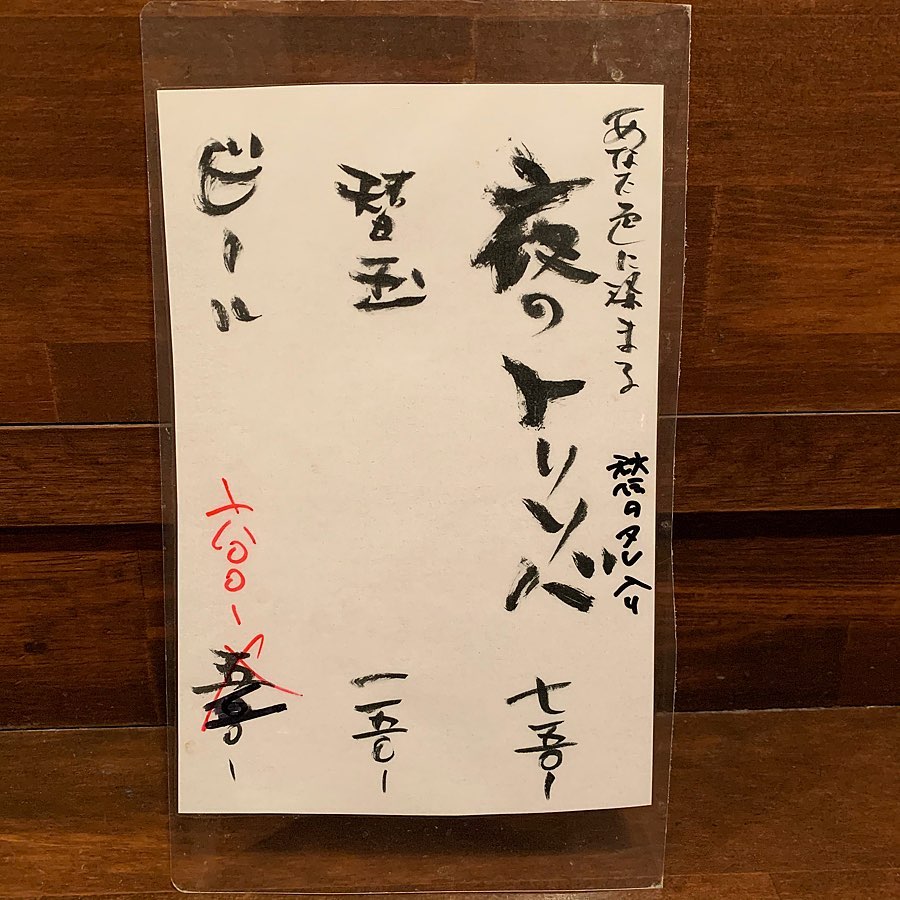 あなた色に染まる
秘伝のタレ入り
夜のトリソバ
七五〇-
替玉
一五〇-
ビール
六〇〇-
五〇〇-